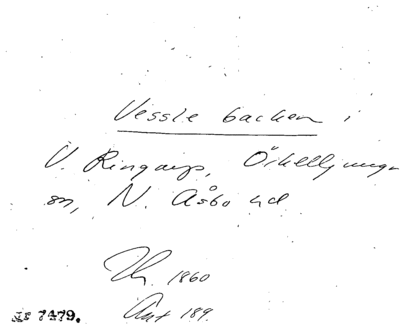 Vessle backen i
V. Ringarp, Örkelljunga
sn, N. Åsbo hd
Th. 1860
Ant 189.
7479.